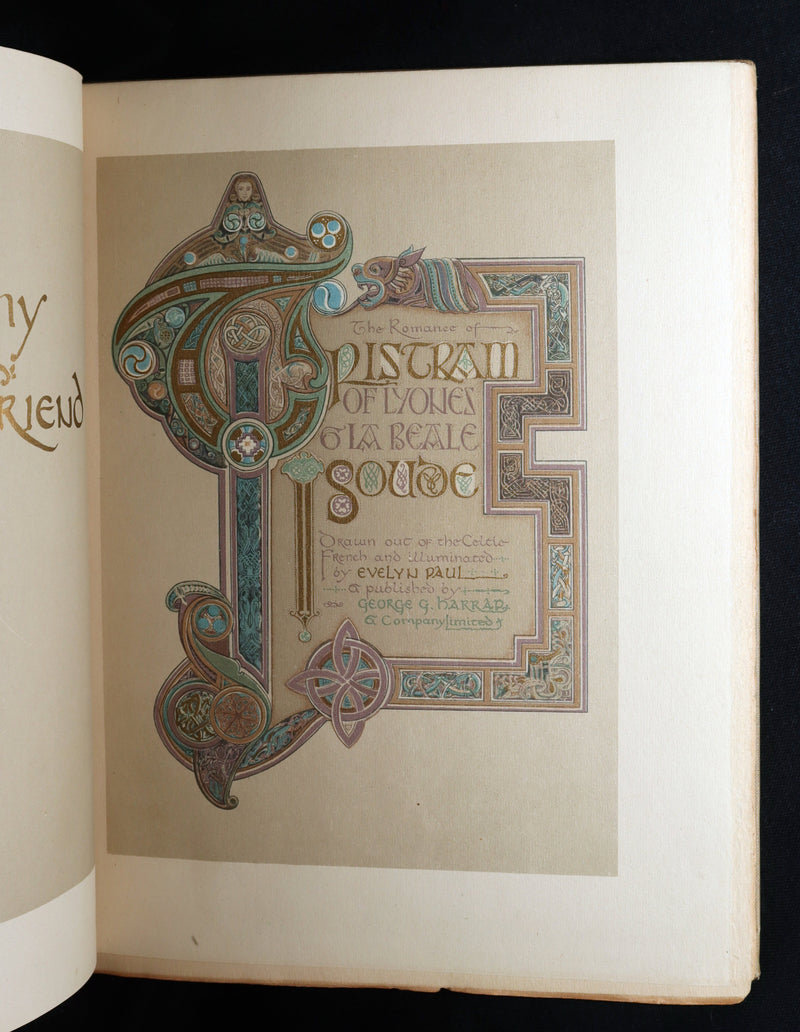 RIEND
The Romance of
TRISTRAM
OF LYONES
& LA BEALE
ISOUDE
Drawn out of the Celtic
French and illuminated
by EVELYN PAUL
& published by
GEORGE G. HARRAP
& Company Limited